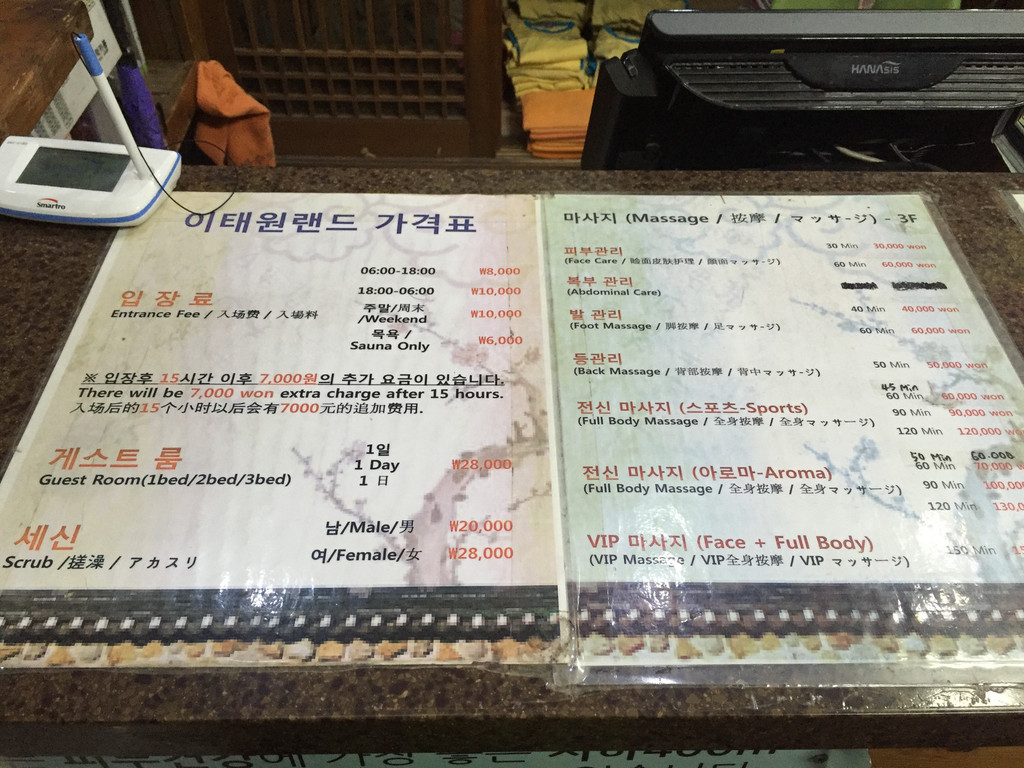 HANAsis
Smartro
이태원랜드 가격표
입장료
Entrance Fee / 入场费 / 入場料
06:00-18:00 ₩8,000
18:00-06:00 ₩10,000
주말/周末
/Weekend ₩10,000
목욕 /
Sauna Only ₩6,000
※ 입장후 15시간 이후 7,000원의 추가 요금이 있습니다.
There will be 7,000 won extra charge after 15 hours.
入场后的15个小时以后会有7000元的追加费用.
게스트 룸
Guest Room(1bed/2bed/3bed)
1일
1 Day ₩28,000
1 日
세신
Scrub /搓澡 / アカスリ
남/Male/男 ₩20,000
여/Female/女 ₩28,000
마사지 (Massage / 按摩 / マッサ-ジ) - 3F
피부관리 30 Min 30,000 won
(Face Care / 脸面皮肤护理 / 顔面マッサ-ジ) 60 Min 60,000 won
복부 관리
(Abdominal Care)
발 관리 40 Min 40,000 won
(Foot Massage / 脚按摩 / 足マッサ-ジ) 60 Min 60,000 won
등관리
(Back Massage / 背部按摩 / 背中マッサージ) 50 Min 50,000 won
45 Min
전신 마사지 (스포츠-Sports) 60 Min 60,000 won
(Full Body Massage / 全身按摩 / 全身マッサージ) 90 Min 90,000 won
120 Min 120,000 won
50 Min 60.000
전신 마사지 (아로마-Aroma) 60 Min 70,000 w
(Full Body Massage / 全身按摩 / 全身マッサージ) 90 Min 100,00
120 Min 130,0
VIP 마사지 (Face + Full Body) 150 Min
(VIP Massage / VIP全身按摩 / VIP マッサージ)